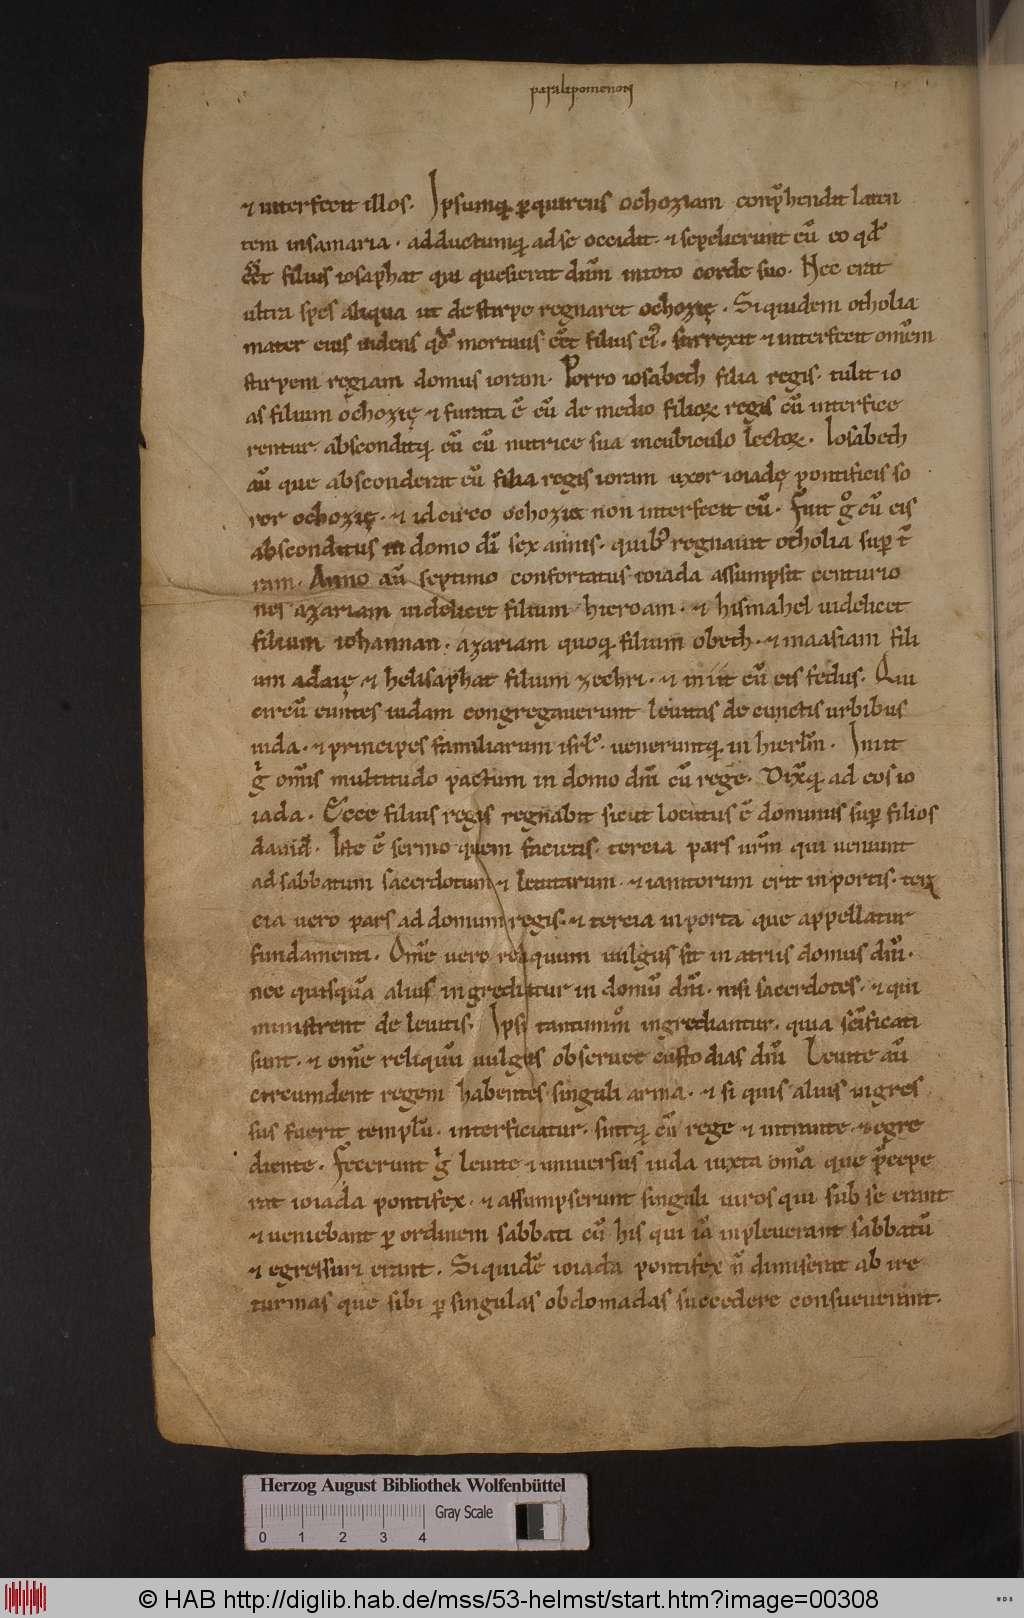 paralipomenon
⁊ interfecit illos. Ipsumq; ꝑquirens ochoziam conp̃hendit laten
tem insamaria. adductumq; adse occidit. ⁊ sepelierunt eũ eo qđ
eẽt filius iosaphat qui quesierat dñm intoto corde suo. Nec erat
ultra spes aliqua ut de stirpe regnaret ochozię. Siquidem otholia
mater eius uidens qđ mortuus eẽt filius eiꝰ. surrexit ⁊ interfecit om̃em
stirpem regiam domus ioram. Porro iosabech filia regis. tulit io
as filium ochozię ⁊ furata ẽ eũ de medio filioꝝ regis cũ interfice
rentur. absconditq; eũ cũ nutrice sua incubiculo lectoꝝ. Iosabech
aũ que absconderat eũ filia regis ioram uxor ioiadę pontificis so
ror ochozię. ⁊ idcirco ochozia non interfecit eũ. Fuit gͦ cũ eis
absconditus in domo dĩ sex annis. quibꝰ regnauit otholia suꝑ t̃
ram. Anno aũ septimo confortatus ioiada assumpsit centurio
nes azariam uidelicet filium hieroam. ⁊ hismahel uidelicet
filium iohannan. azariam quoq; filium obeth. ⁊ maasiam fili
um adaię ⁊ helisaphat filium zechri. ⁊ iniit cũ eis fedus. Qui
circũ euntes iudam congregauerunt leuitas de cunctis urbibus
iuda. ⁊ principes familiarum isrl̃. ueneruntq; in hierlm̃. Iniit
gͥ om̃is multitudo pactum in domo dñi cũ rege. Dixitq; ad eos io
iada. Ecce filius regis regnabit sicut locutus ẽ dominus suꝑ filios
dauid. Iste ẽ sermo quem facietis. tercia pars ur̃m qui ueniunt
ad sabbatum sacerdotum ⁊ leuitarum. ⁊ ianitorum erit in portis. ter
cia uero pars ad domum regis. ⁊ tercia in porta que appellatur
fundamenti. Om̃e uero reliquum uulgus sit in atriis domus dñi.
nec quisquã alius ingrediatur in domũ dñi. nisi sacerdotes. ⁊ qui
ministrent de leuitis. Ipsi tantummͦ ingrediantur. quia sc̃ificati
sunt. ⁊ om̃e reliquũ uulgus obseruet custodias dñi Leuite aũ
circumdent regem habentes singuli arma. ⁊ si quis alius ingres
sus fuerit templũ. interficiatur. sintq; cũ rege ⁊ intrante. ⁊ egre
diente. Fecerunt gͥ leuite ⁊ uniuersus iuda iuxta om̃a que p̃cepe
rat ioiada pontifex. ⁊ assumpserunt singuli uiros qui sub se erant
⁊ ueniebant ꝑ ordinem sabbati cũ his qui iã inpleuerant sabbatũ
⁊ egressuri erant. Siquidẽ ioiada pontifex ñ dimiserat ab ire
turmas que sibi ꝑ singulas ebdomadas succedere consueuerant.
Herzog August Bibliothek Wolfenbüttel
Gray Scale
0 1 2 3 4
© HAB http://diglib.hab.de/mss/53-helmst/start.htm?image=00308